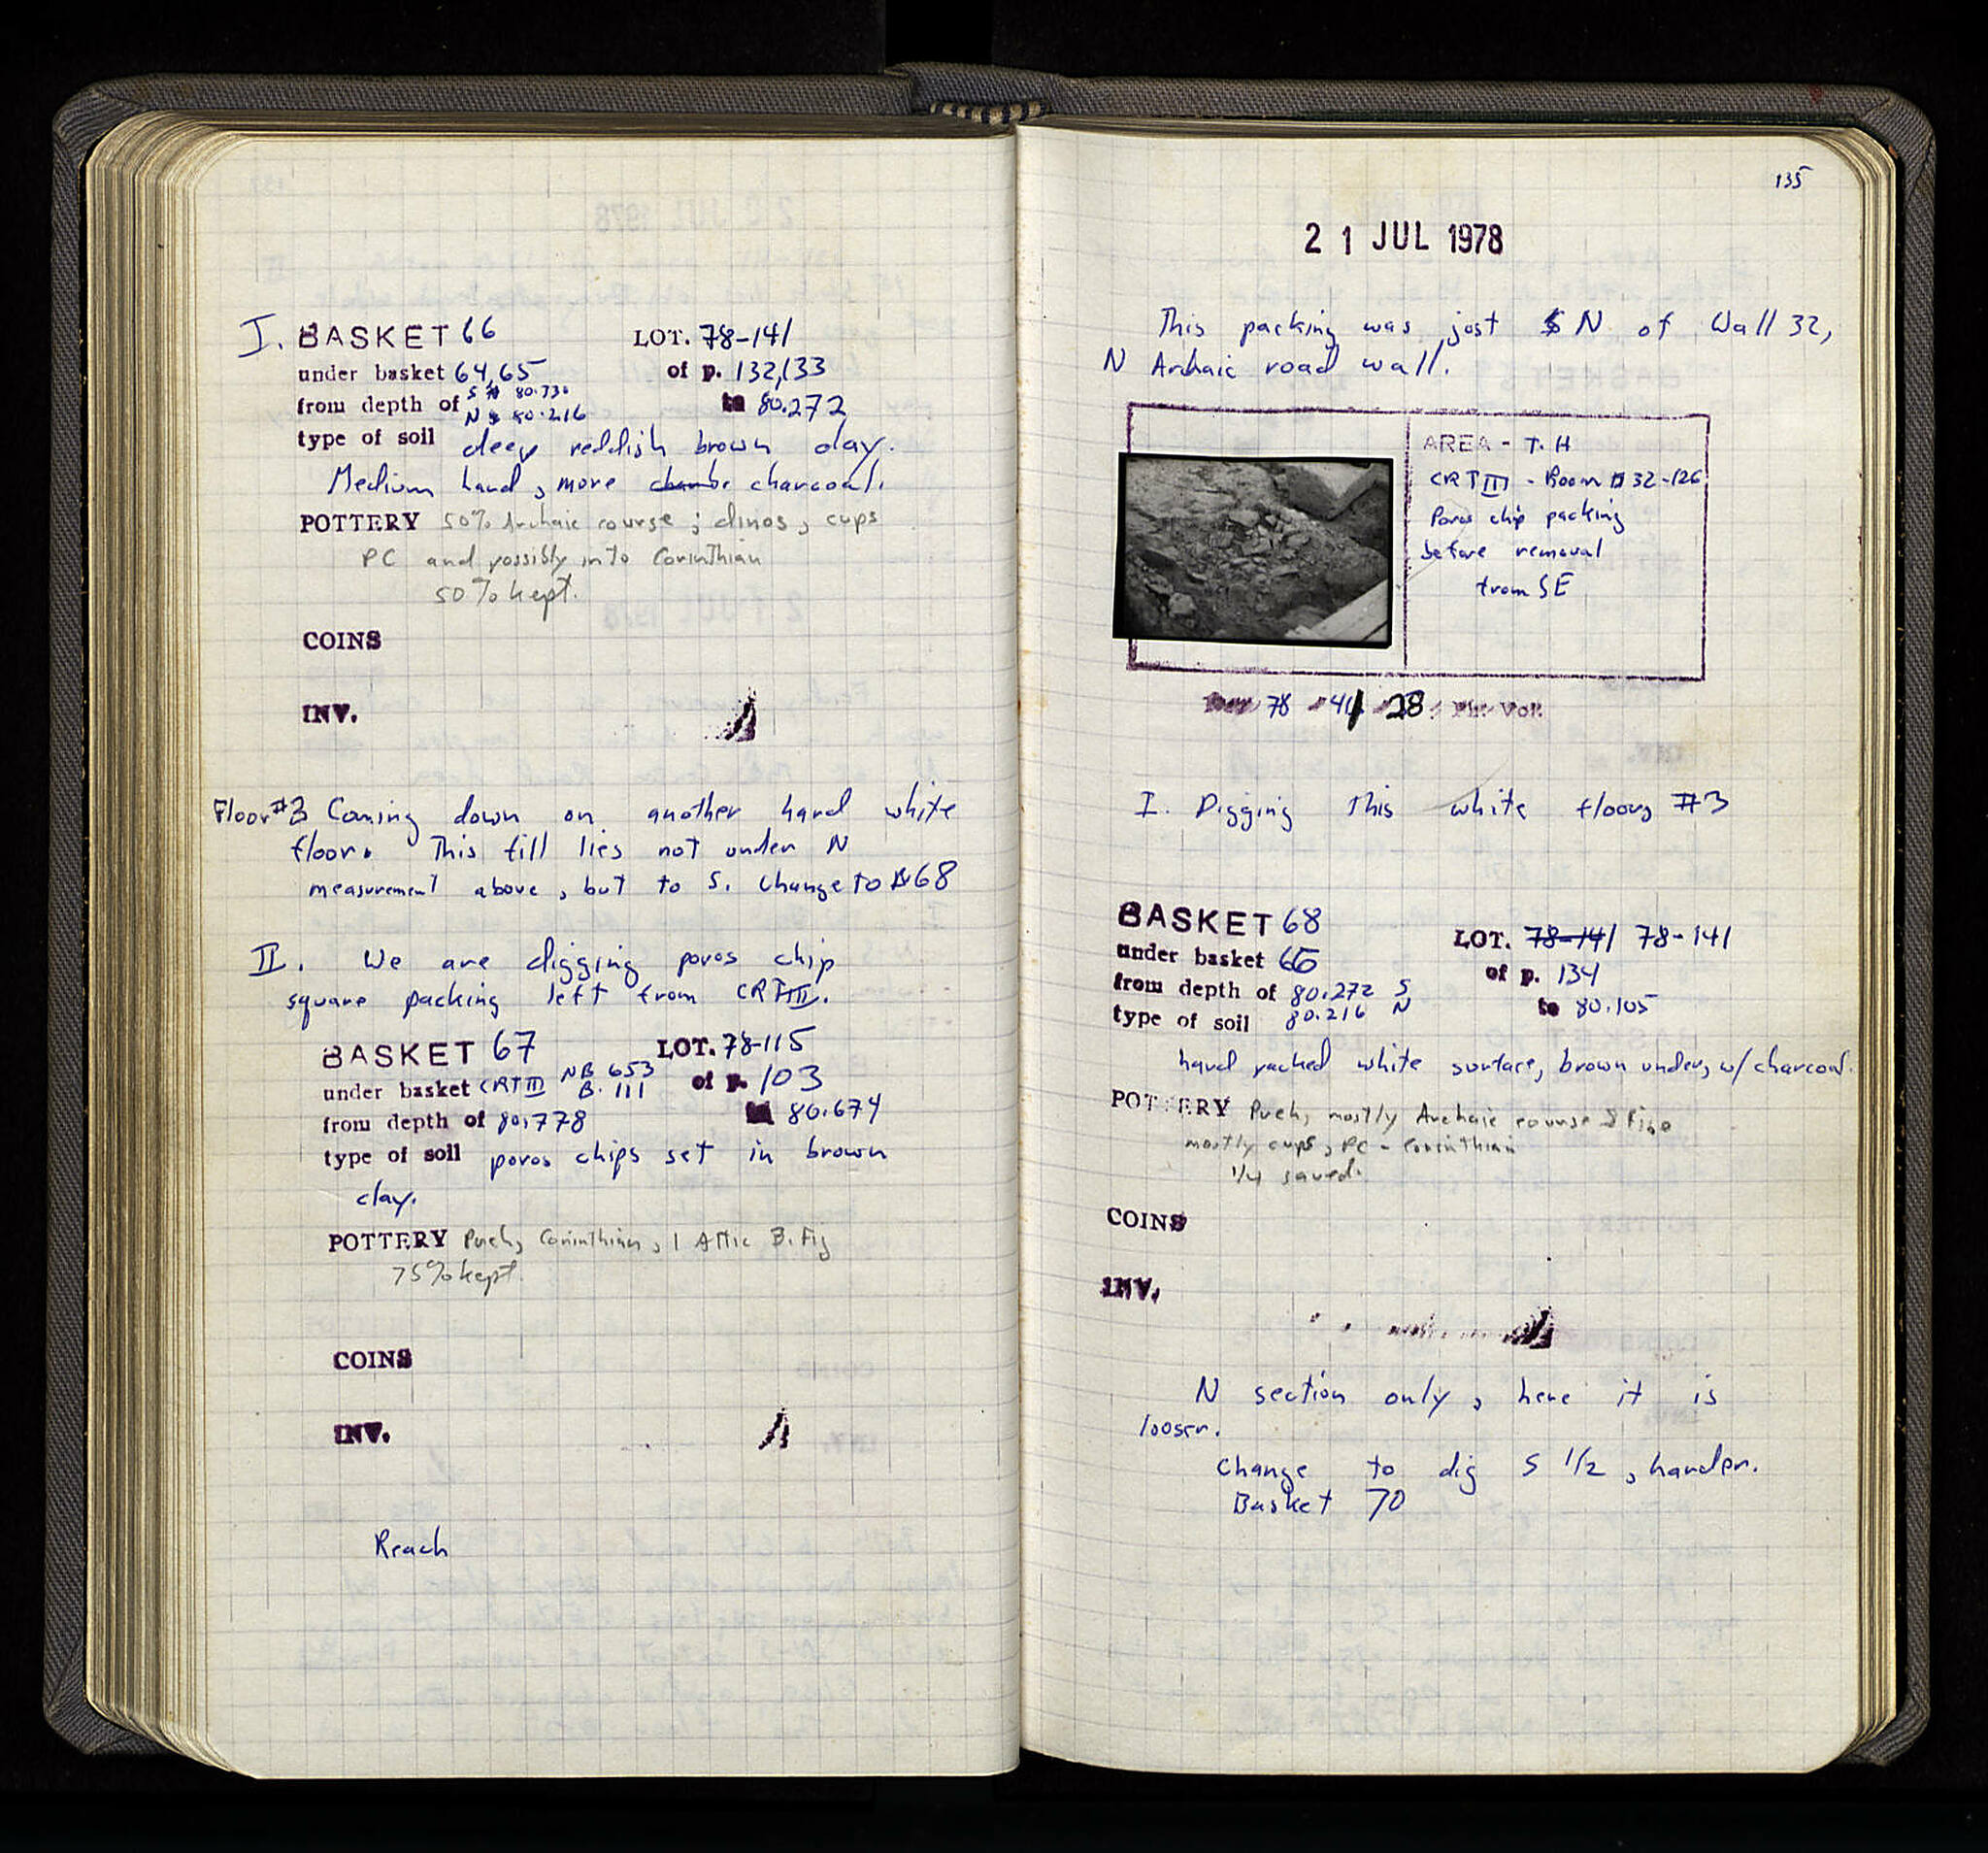 I. BASKET 66 LOT. 78-141
under basket 64,65 of p. 132,133
from depth of S 80.730 N 80.216 to 80.272
type of soil deep reddish brown clay.
Medium hard, more charcoal.
POTTERY 50% Archaic course; dinos, cups
PC and possibly into Corinthian
50% kept.
COINS
INV.
Floor #3 Coming down on another hard white
floor. This fill lies not under N
measurement above, but to S. Change to B68
II. We are digging poros chip
square packing left from CRT III.
BASKET 67 LOT. 78-115
under basket CRT III NB 653 B. 111 of p. 103
from depth of 80.778 80.674
type of soil poros chips set in brown
clay.
POTTERY Corinthian, 1 Attic B. Fig
75% kept.
COINS
INV.
Reach
135
21 JUL 1978
This packing was just N of Wall 32,
N Archaic road wall.
AREA - T. H
CRT III - Room 32-126
Poros chip packing
before removal
from SE
78 - 41 28
I. Digging this white floor, #3
BASKET 68 LOT. 78-141 78-141
under basket 66 of p. 134
from depth of 80.272 S 80.216 N to 80.105
type of soil
hard packed white surface, brown under, w/ charcoal.
POTTERY mostly Archaic course & fine
mostly cups, PC - Corinthian
1/4 saved.
COINS
INV.
N section only, here it is
looser.
Change to dig S 1/2, harder.
Basket 70